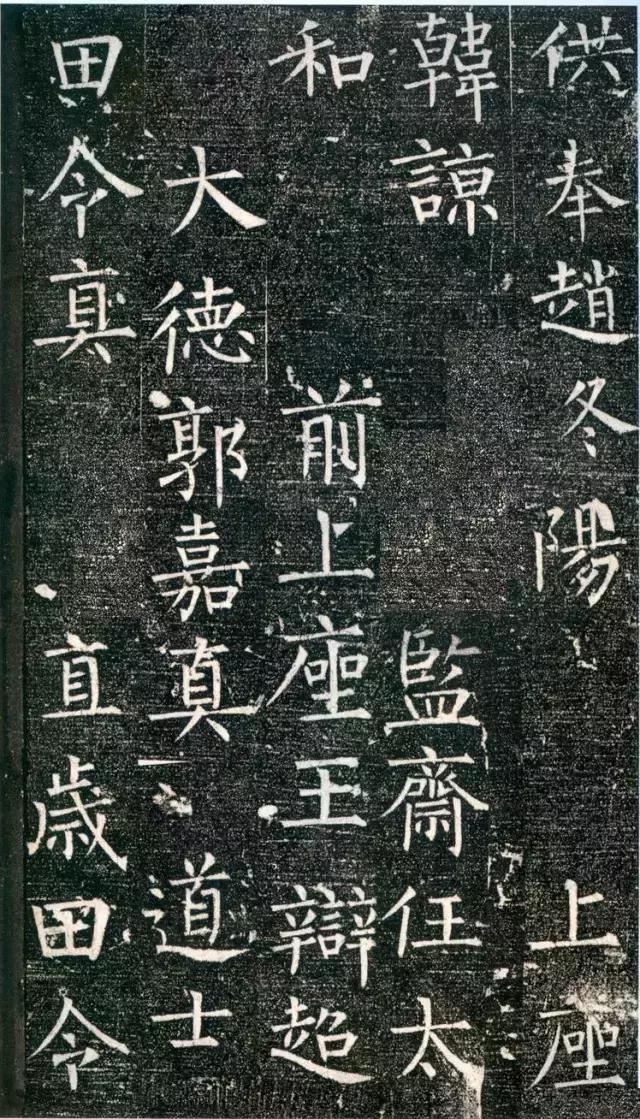 供奉趙冬陽 上座
韓諒 監齋任太
和 前上座王辯超
大德郭嘉真 道士
田令真 直歳田令